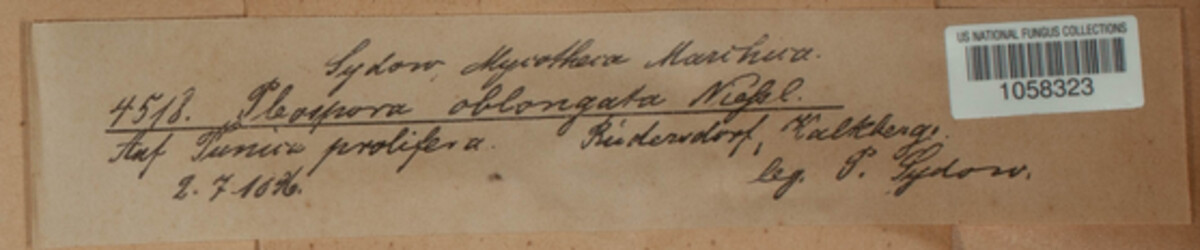 Sydow, Mycotheca Marchica.
US NATIONAL FUNGUS COLLECTIONS
1058323
4518. Pleospora oblongata Niessl.
Auf Tunica prolifera. Rüdersdorf, Kalkberge.
2. 7. leg. P. Sydow.